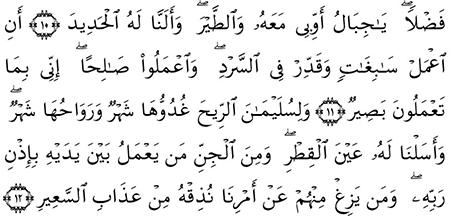 فَضْلًاۖ يَٰجِبَالُ أَوِّبِى مَعَهُۥ وَٱلطَّيْرَۖ وَأَلَنَّا لَهُ ٱلْحَدِيدَ ۝١٠ أَنِ
ٱعْمَلْ سَٰبِغَٰتٍ وَقَدِّرْ فِى ٱلسَّرْدِۖ وَٱعْمَلُوا۟ صَٰلِحًاۖ إِنِّى بِمَا
تَعْمَلُونَ بَصِيرٌ ۝١١ وَلِسُلَيْمَٰنَ ٱلرِّيحَ غُدُوُّهَا شَهْرٌ وَرَوَاحُهَا شَهْرٌۖ
وَأَسَلْنَا لَهُۥ عَيْنَ ٱلْقِطْرِۖ وَمِنَ ٱلْجِنِّ مَن يَعْمَلُ بَيْنَ يَدَيْهِ بِإِذْنِ
رَبِّهِۦۖ وَمَن يَزِغْ مِنْهُمْ عَنْ أَمْرِنَا نُذِقْهُ مِنْ عَذَابِ ٱلسَّعِيرِ ۝١٢